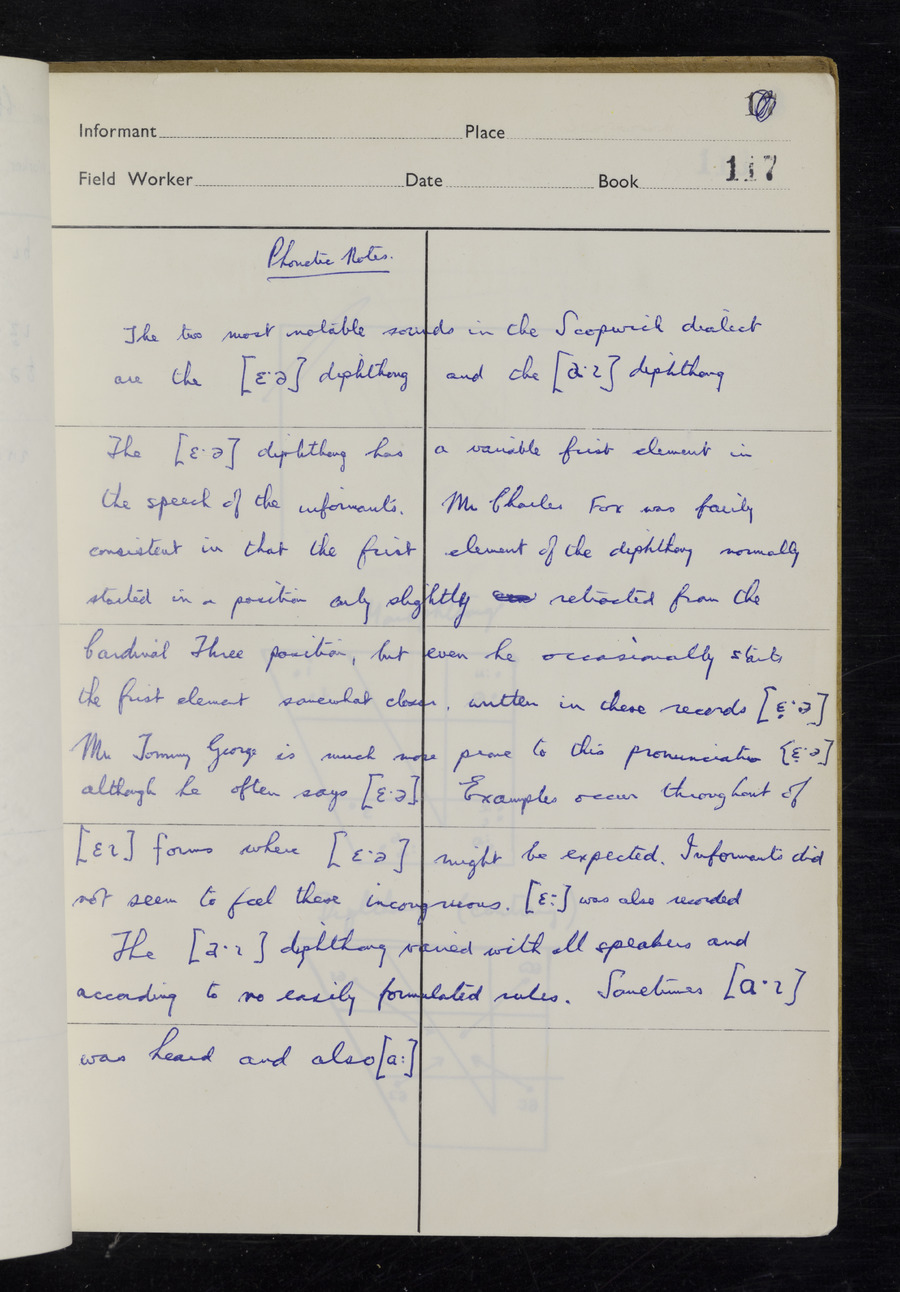 Informant Place
Field Worker Date Book 117
Phonetic Notes.
The two most notable sounds in the Scopwick dialect
are the [ɛ·ə] diphthong and the [a·ɪ] diphthong
The [ɛ·ə] diphthong has a variable first element in
the speech of the informants. Mr Charles Fox was fairly
consistent in that the first element of the diphthong normally
started in a position only slightly retracted from the
Cardinal Three position, but even he occasionally starts
the first element somewhat closer, written in these records [ɛ̣·ə]
Mr Tommy George is much more prone to this pronunciation [ɛ̣·ə]
although he often says [ɛ·ə]. Examples occur throughout of
[ɛɪ] forms where [ɛ·ə] might be expected. Informants did
not seem to feel these incongruous. [ɛː] was also recorded
The [a·ɪ] diphthong varied with all speakers and
according to no easily formulated rules. Sometimes [ɑ·ɪ]
was heard and also [aː]